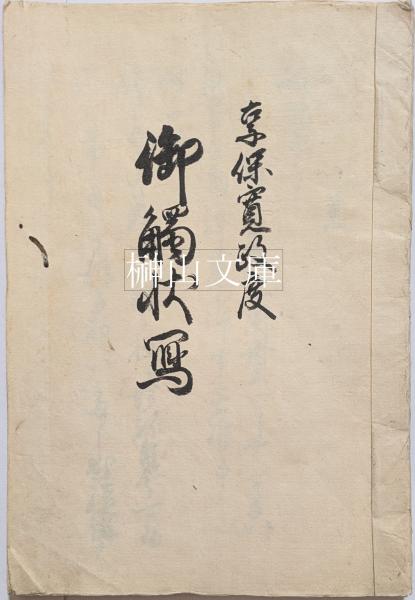 享保寛政度
御觸状写
榊山文庫